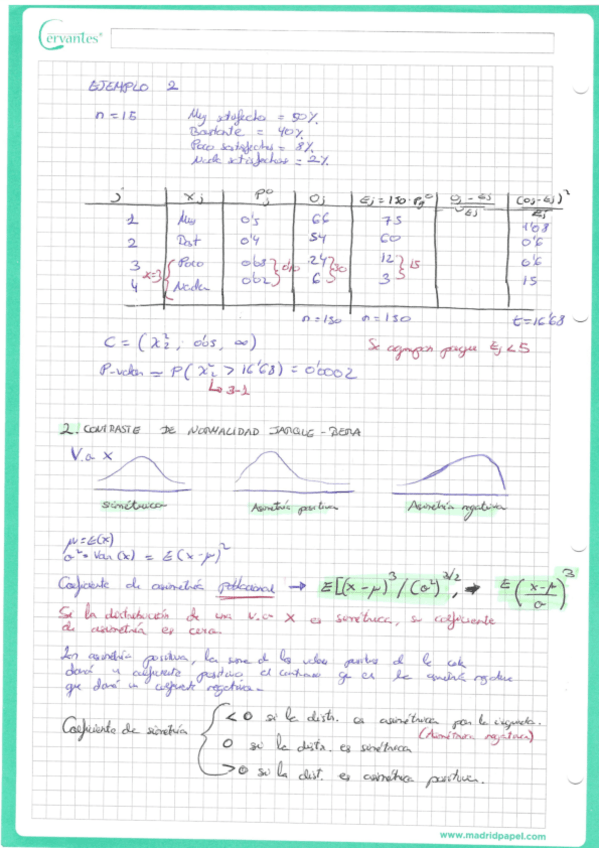 Cervantes®
EJEMPLO 2
n = 15 Muy satisfecho = 50%
Bastante = 40%
Poco satisfechos = 8%
Nada satisfechos = 2%
j Xj Pj⁰ Oj Ej = 150·Pj⁰ Oj - Ej / Ej (Oj - Ej)² / Ej
1 Muy 0'5 66 75 1'08
2 Bast 0'4 54 60 0'6
3 Poco 0'08 24 12 0'6
K=3 0'10 30 15
4 Nada 0'02 6 3 15
n = 150 n = 150 t = 16'68
C = (X²₂, 0'05, ∞) Se agrupan porque Ej < 5
P-valor = P(X²₂ > 16'68) = 0'0002
↳ 3-1
2. CONTRASTE DE NORMALIDAD JARQUE-BERA
V.a X
simétrica Asimetría positiva Asimetría negativa
μ = E(X)
σ² = Var(X) = E(X-μ)²
Coeficiente de asimetría poblacional → E[(X-μ)³/(σ²)^3/2], → E(X-μ / σ)³
Si la distribución de una v.a X es simétrica, su coeficiente
de asimetría es cero.
asimetría positiva, la de los valores de la cola
dará un coeficiente positivo, al contrario que es la asimetría negativa
que dará un coeficiente negativo.
Coeficiente de simetría { < 0 si la distr. es asimétrica por la izquierda.
(Asimetría negativa)
0 si la distr. es simétrica
> 0 si la dist. es asimétrica positiva.
www.madridpapel.com